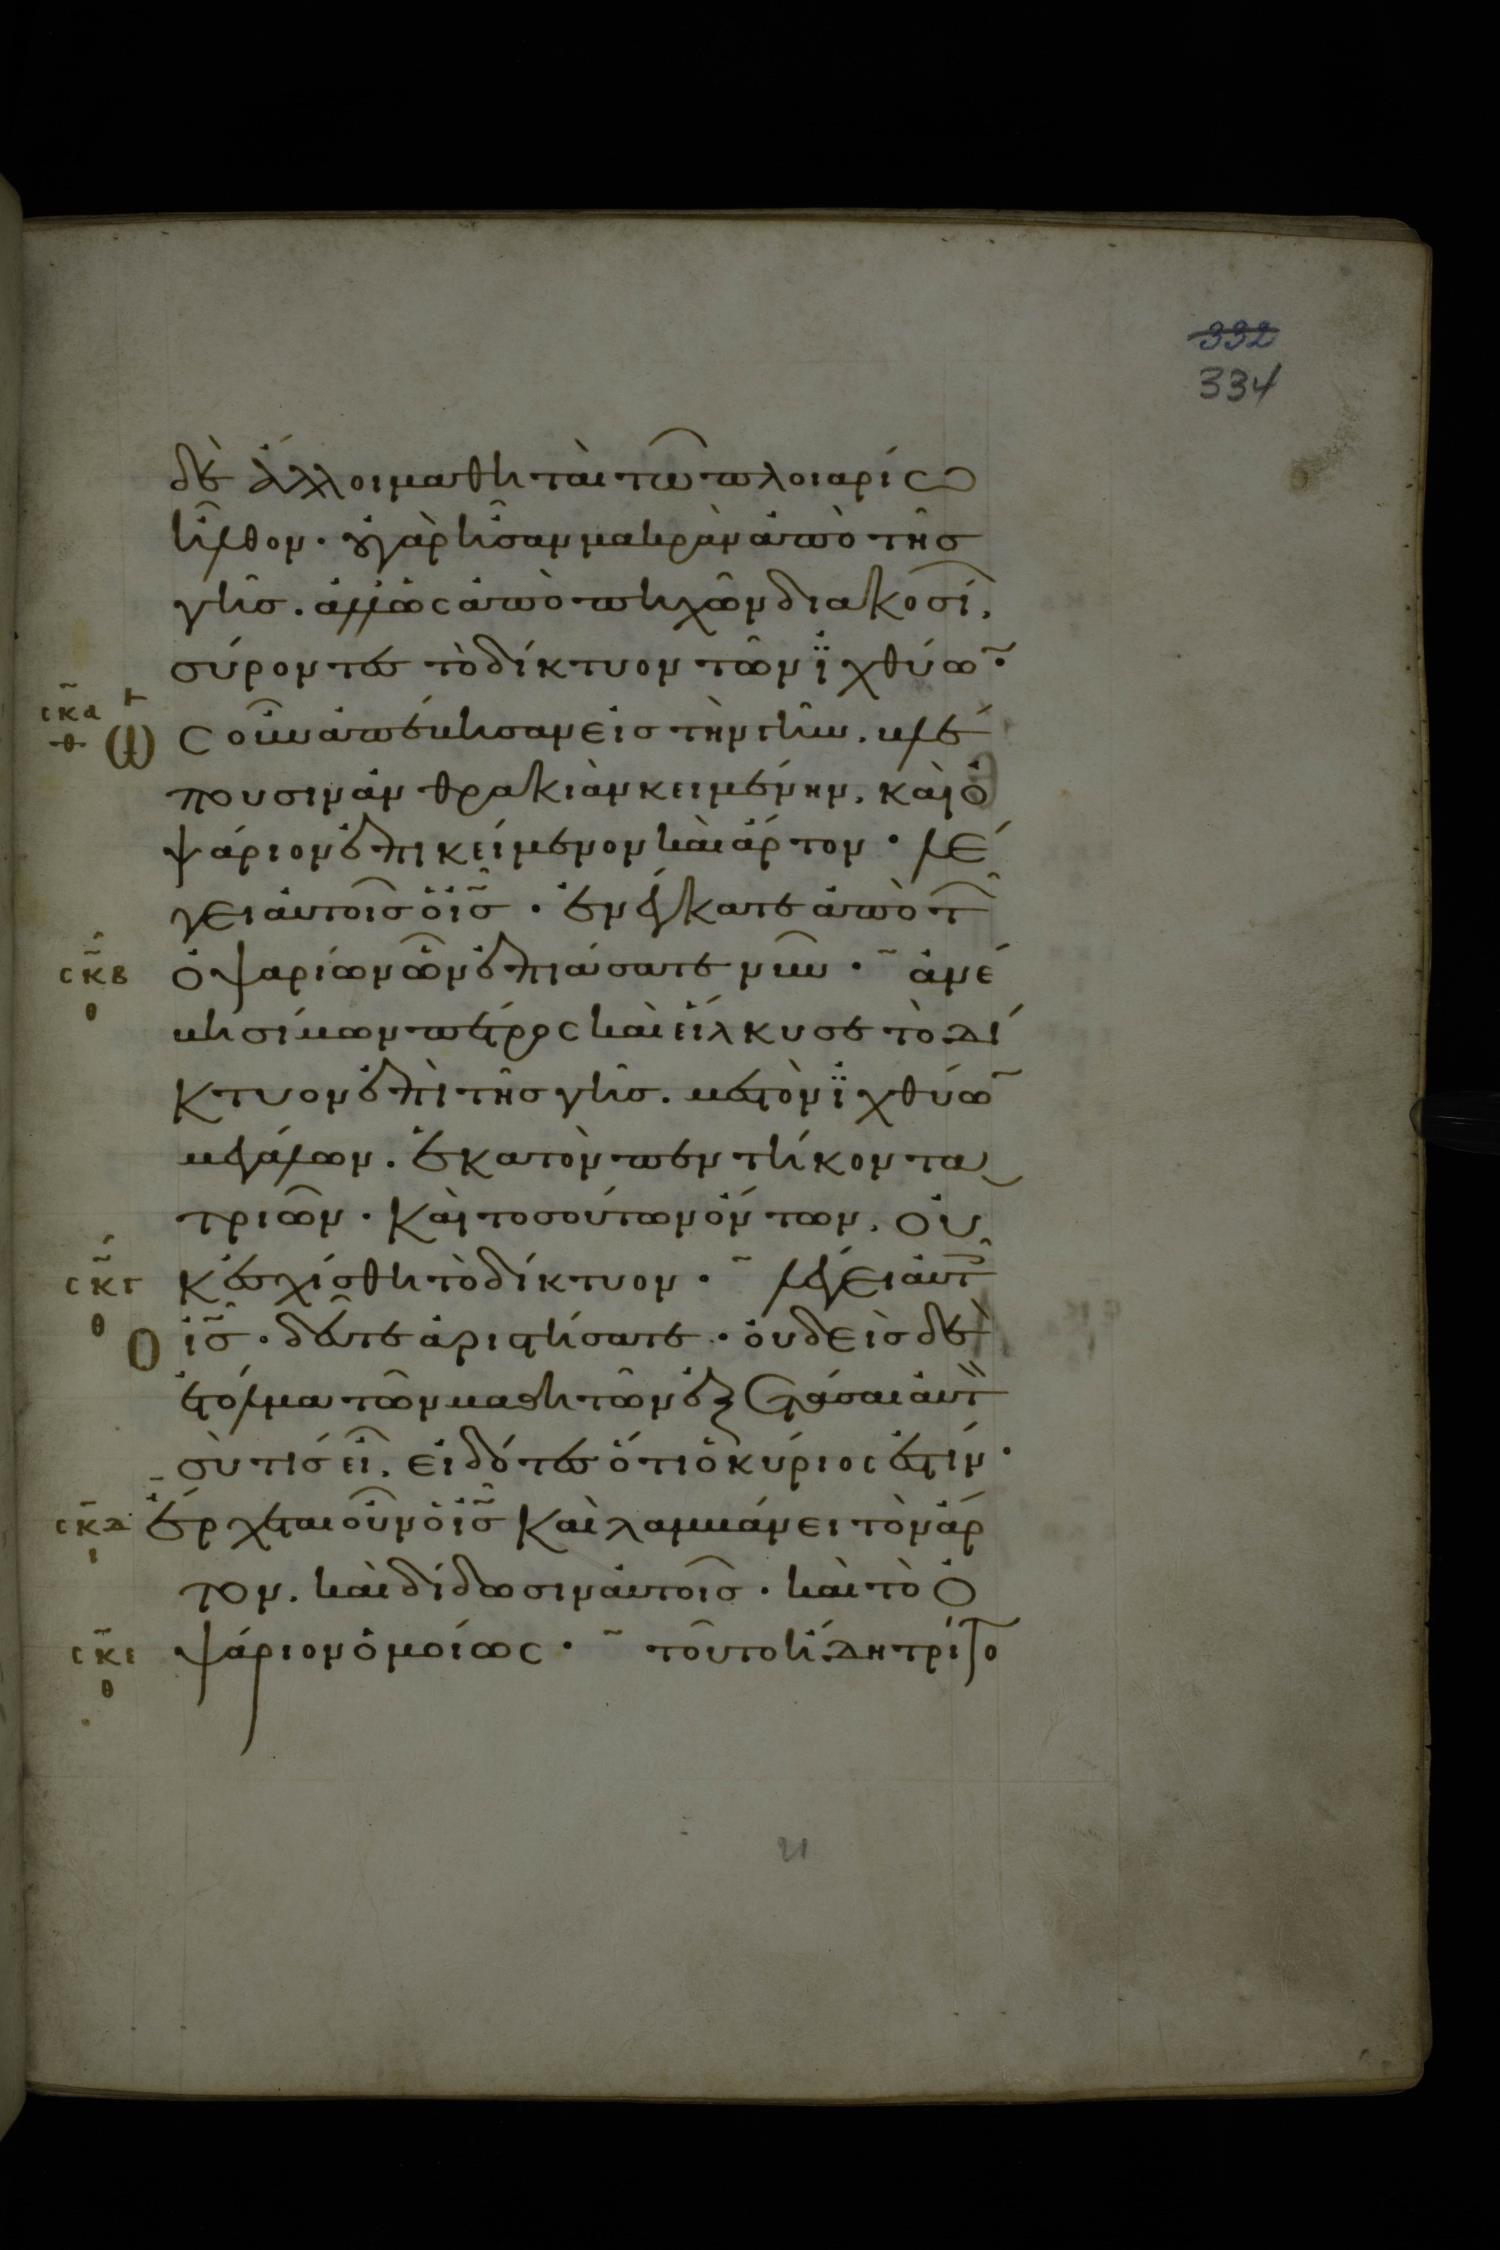 332
334
δὲ ἄλλοι μαθηταὶ τῶ πλοιαρίω
ἦλθον· οὐ γὰρ ἦσαν μακρὰν ἀπὸ τῆσ
γῆσ. ἀλλ' ὡς ἀπὸ πηχῶν διακοσί,
σύροντεσ τὸ δίκτυον τῶν ϊχθύω̃·
σκα θ
Ὡς οὖν ἀπέβησαν εἰσ τὴν γῆν, βλέ
πουσιν ἀνθρακιὰν κειμένην, καὶ ὀ
ψάριον ἐπικείμενον καὶ ἄρτον· λέ
γει αὐτοῖσ ὁ ισ̃· ἐνέγκατε ἀπὸ τ̑
σκβ θ
ὀψαρίων ὧν ἐπιάσατε νῦν· ἀνέ
βη σίμων πέτρος καὶ εἵλκυσε τὸ δί
κτυον ἐπὶ τῆσ γῆσ. μεστὸν ϊχθύω̃
μεγάλων. ἑκατὸν πεντήκοντα
τριῶν· καὶ τοσούτων ὄντων, οὐ
σκγ θ
κ ἐσχίσθη τὸ δίκτυον· λέγει αὐτ̑
Ὁ ισ̃· δεῦτε ἀριστήσατε· οὐδεὶσ δὲ
ἐτόλμα τῶν μαθητῶν ἐξετάσαι αὐτ
σὺ τίσ εἶ, εἰδότεσ ὅτι ὁ κύριος ἐστίν·
σκδ ι
ἔρχεται οὖν ὁ ισ̃ καὶ λαμβάνει τὸν ἄρ
τον. καὶ δίδωσιν αὐτοῖσ· καὶ τὸ ὀ
σκε θ
ψάριον ὁμοίως· τοῦτο ἤδη τρίτο